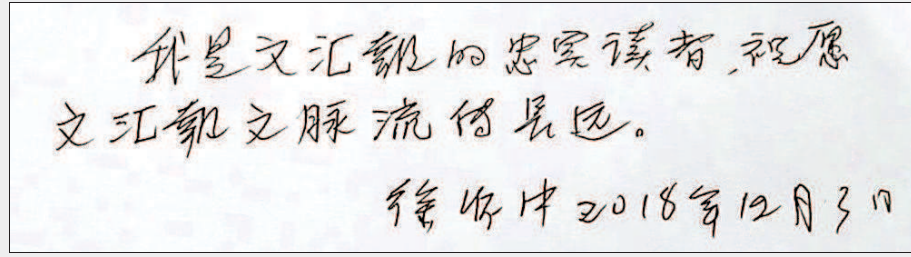 我是文汇報的忠实读者,祝愿
文汇報文脉流传長远。
徐怀中2018年12月3日